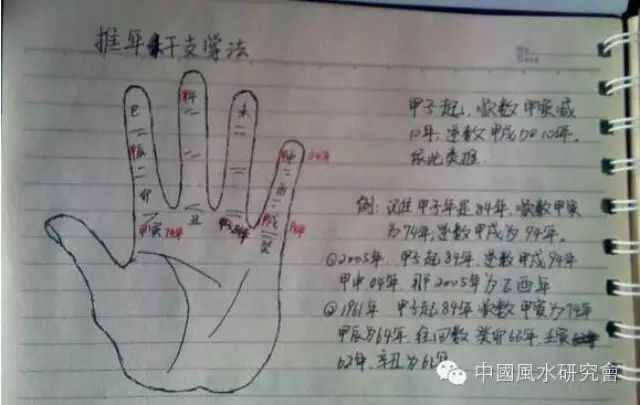 推年干支掌法
No.
Date
甲子起, 顺数甲寅减
10年, 逆数甲戌加10年.
依此类推.
例: 汉推甲子年是84年, 顺数甲寅
为74年, 逆数甲戌为94年.
①2005年, 甲子起84年, 逆数甲戌94年
甲申04年, 那2005年为乙酉年
②1961年 甲子起84年 顺数甲寅为74年
甲辰为64年, 往回数 癸卯63年, 壬寅
62年, 辛丑为61年
巳
甲午
未
甲辰
甲申
04年
酉
卯
甲寅 74年
丑
甲子 84年
甲戌
94年
亥
中國風水研究會